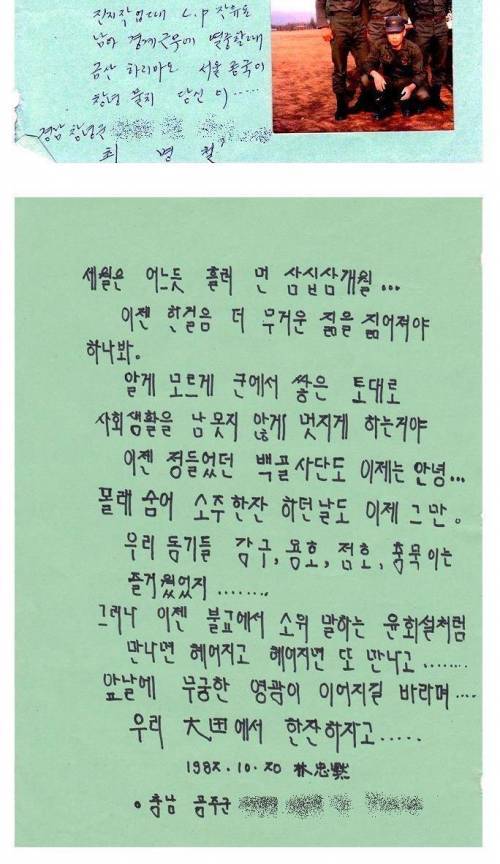 진지작업때 L.P 잣유도
남아 경계근무에 열중할때
금산 하리마오 서울 종국이
창녕 물치 당신이.....
경남 창녕군
최 명 철
세월은 어느듯 흘러 먼 삼십삼개월...
이젠 한걸음 더 무거운 짊을 짊어져야
하나봐.
알게 모르게 군에서 쌓은 토대로
사회생활을 남못지 않게 멋지게 하는거야
이젠 정들었던 백골사단도 이제는 안녕...
몰래 숨어 소주한잔 하던날도 이제 그만.
우리 동기들 강구, 용호, 점호, 충묵이는
즐거웠었지........
그러나 이젠 불교에서 소위 말하는 윤회설처럼
만나면 헤어지고 헤어지면 또 만나고........
앞날에 무궁한 영광이 이어지길 바라며....
우리 大田에서 한잔하자고.....
1982.10.20 林忠默
충남 공주군